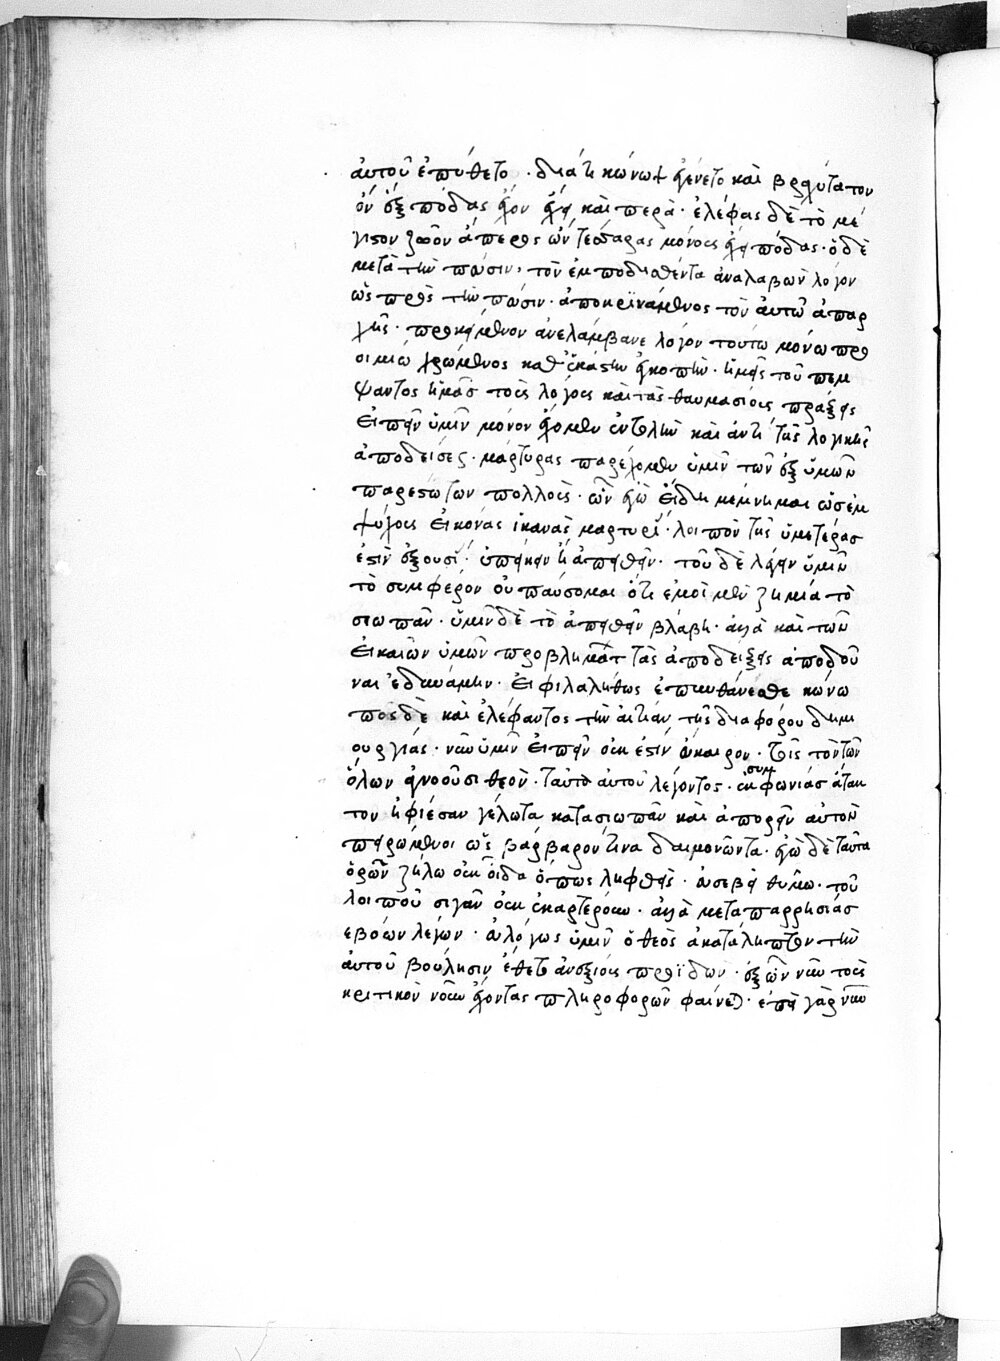 αὐτοῦ ἐπύθετο · διατὶ κώνωψ ἐγένετο καὶ βραχύτατον
ὂν ἓξ πόδας ἔχον ἔχει καὶ πτερά · ἐλέφας δὲ τὸ μέ
γιστον ζῶον ἄπτερος ὢν τέσσαρας μόνους ἔχει πόδας · ὁ δὲ
μετὰ τὴν πεῦσιν, τὸν ἐμποδισθέντα ἀναλαβὼν λόγον
ὡς πρὸς τὴν πεῦσιν · ἀποκρινάμενος τὸν αὐτῶ ἀπαρ
χῆς · προκείμενον ἀνελάμβανε λόγον τούτω μόνω προ
οιμίω χρώμενος καθ' ἑκάστην ἐγκοπήν · ἡμεῖς τοῦ πέμ
ψαντος ἡμᾶς τοὺς λόγους καὶ τὰς θαυμασίους πράξεις
εἰπεῖν ὑμῖν μόνον ἔχομεν ἐντολὴν καὶ ἀντὶ τῆς λογικῆς
ἀποδείσεως · μάρτυρας παρέχομεν ὑμῖν τῶν ἐξ ὑμῶν
παρεστώτων πολλούς · ὧν ἐγὼ εἴδη μέμνημαι ὡς ἐμ
ψύχους εἰκόνας ἱκανὰς μαρτυρί · λοιπὸν τῆς ὑμετέρας
ἐστὶν ἐξουσί · ὑπείκειν ἢ ἀπειθεῖν · τοῦ δὲ λέγειν ὑμῖν
τὸ συμφέρον οὐ παύσομαι ὅτι ἐμοὶ μὲν ζημία τὸ
σιωπᾶν · ὑμῖν δὲ τὸ ἀπειθεῖν βλάβη · ἀλλὰ καὶ τῶν
εἰκαίων ὑμῶν προβλημάτ τὰς ἀποδείξεις ἀποδοῦ
ναι ἐδυνάμην · εἰ φιλαλήθως ἐπυνθάνεσθε κώνω
πος δὲ καὶ ἐλέφαντος τὴν αἰτίαν τῆς διαφόρου δημι
ουργίας · νῦν ὑμῖν εἰπεῖν οὐκ ἔστιν εὔκαιρον · τοῖς τὸν τῶν
ὅλων ἀγνοοῦσι θεόν · ταῦτα αὐτοῦ λέγοντος · ἐκ συμφωνίας ἄτακ
τον ἠφίεσαν γέλωτα κατασιωπᾶν καὶ ἀπορεῖν αὐτὸν
πειρώμενοι ὡς βάρβαρόν τινα δαιμονῶντα · ἐγὼ δὲ ταῦτα
ὁρῶν ζήλω οὐκ οἶδα ὅπως ληφθείς · εὐσεβεῖ θυμῶ · τοῦ
λοιποῦ σιγᾶν οὐκ ἐκαρτέρουν · ἀλλὰ μετὰ παρρησίας
ἐβόων λέγων · εὐλόγως ὑμῖν ὁ θεὸς ἀκατάληπτον τὴν
αὐτοῦ βούλησιν ἔθετο ἀναξίους προϊδών · ἐξ ὧν νῦν τοῖς
κριτικὸν νοῦν ἔχοντας πληροφορῶν φαίνεται · ἐπεὶ γὰρ νῦν